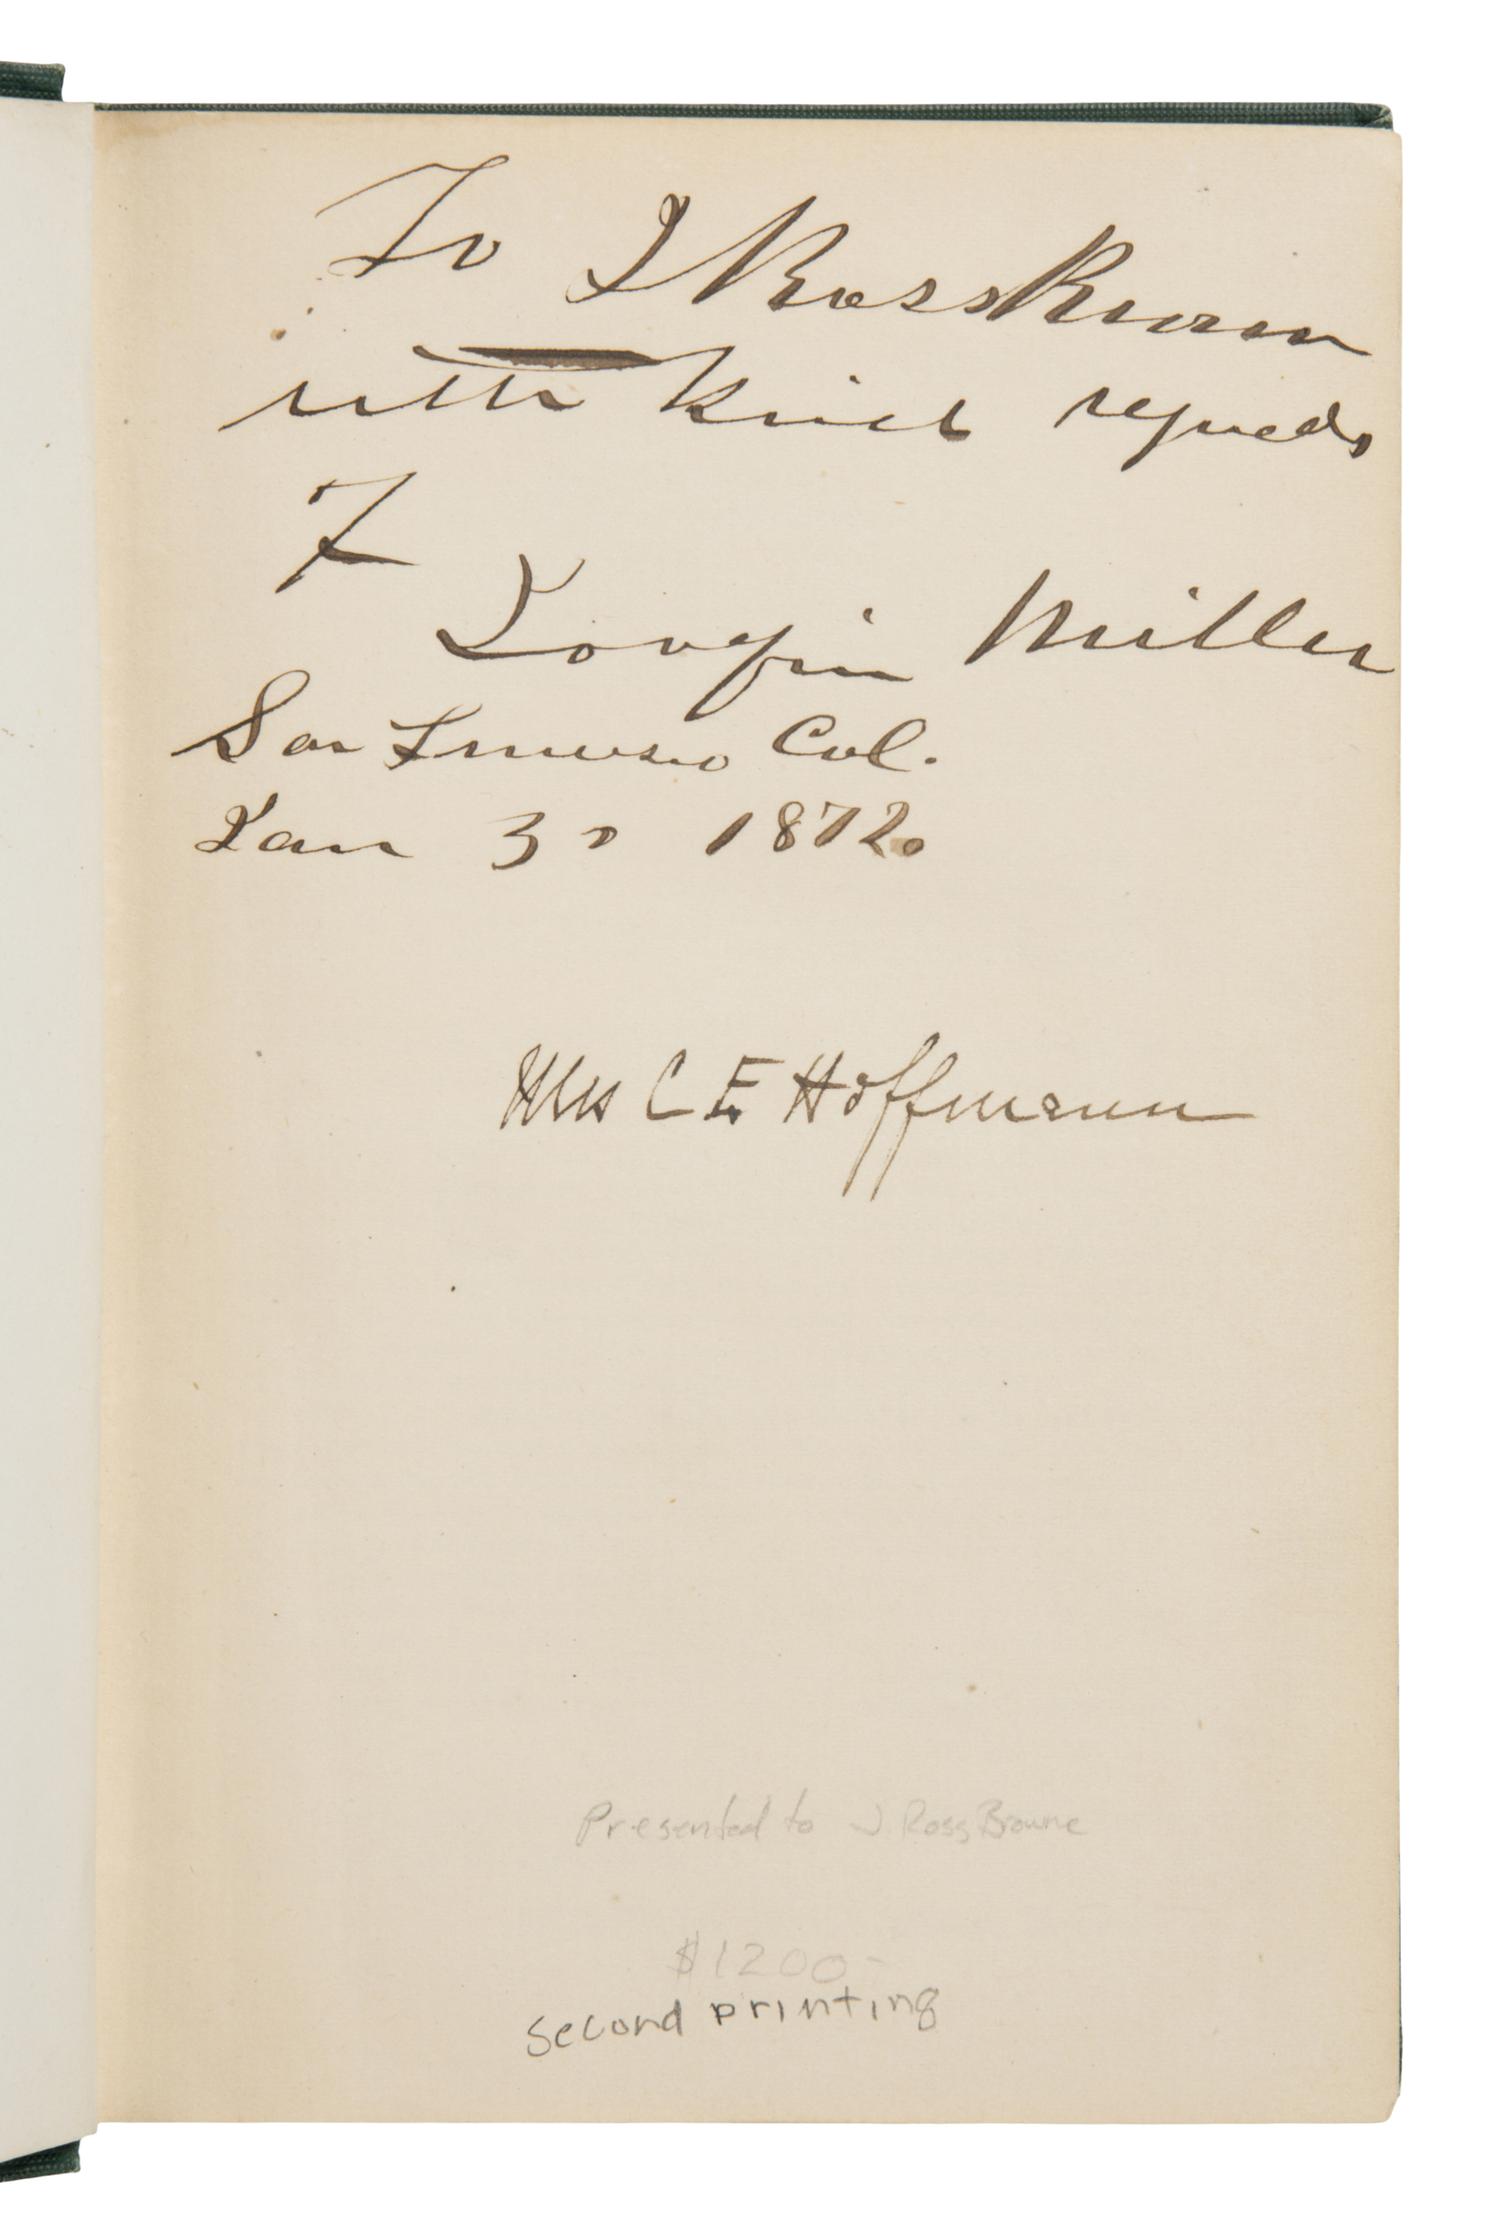 To J Ross Browne
with kind regards
F
Joaquin Miller
San Francisco Cal.
Jan 30 1872.
Mrs C E Hoffmann
Presented to J. Ross Browne
$1200-
second printing